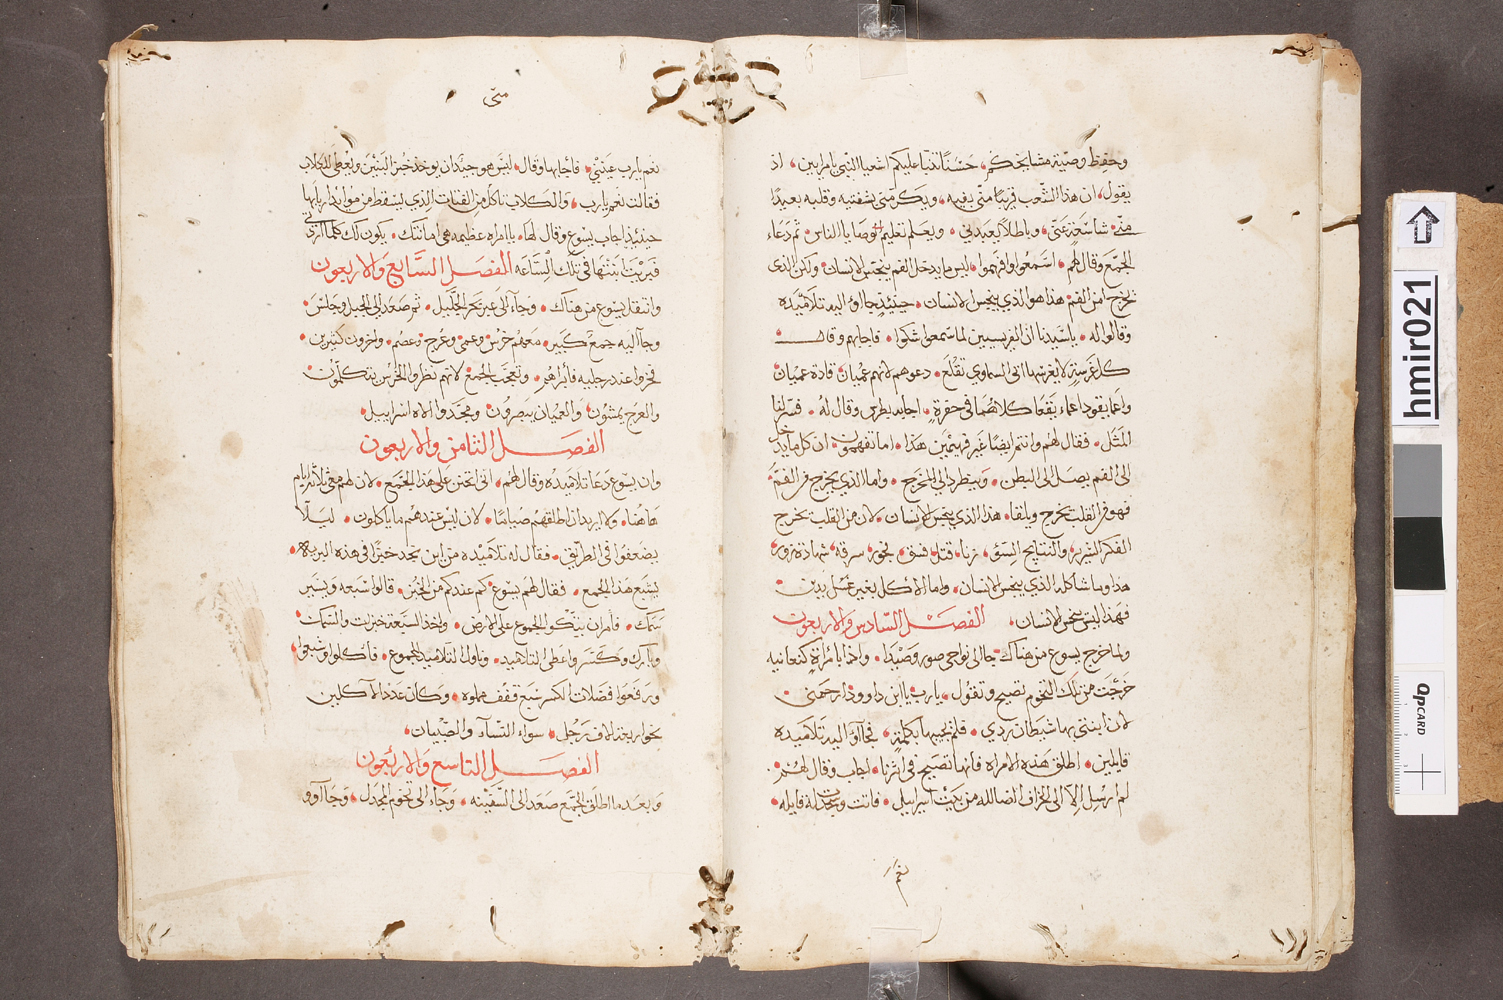 وحفظ وصية مشايخكم، حسنًا تنبّا عليكم اشعيا النبي يا مرايين، اذ
يقول، ان هذا الشعب قريبًا منّي بفيه، ويكرمني بشفتيه وقلبه بعيدًا
منّي شاسَعَ عنّي، وباطلاً يعبدني، ويعلم تعليم وصايا الناس، ثم دعاء
الجمع وقال لهم، اسمعوا وافهموا، ليس ما يدخل الفم ينجس الانسان، ولكن الذي
يخرج من الفم هذا هو الذي ينجس الانسان، حينيذٍ جااوا اليه تلاميذه
وقالوا له، يا سيدنا ان الفريسيين لما سمعوا شكوا، فاجابهم وقال
كل غرسةٍ لا يغرسها ابي السماوي تقلع، دعوهم لانهم عميان قادة عميان
واعما يقود اعماء يقعا كلاهما في حفرةٍ، اجابه بطرس وقال له، فسّر لنا
المثل، فقال لهم وانتم ايضًا غير فهيمين هكذا، اما تفهمون ان كل ما يدخل
الى الفم يصل الى البطن، وينطرد الى المخرج، واما الذي يخرج من الفم
فهو من القلب يخرج ويلقا، هذا الذي ينجس الانسان، لان من القلب تخرج
الفكر الشريره والنتايج السوء، زنا، قتل، فسق، فجور، سرقه، شهادة زور،
هذا وما شاكله الذي ينجس الانسان، واما الاكل بغير غسل يدين
فهذا ليس ينجس الانسان، الفصل السادس والاربعون
ولما خرج يسوع من هناك جا الى نواحي صور وصيدا، واذا بامراةٍ كنعانيه
خرجت من تلك التخوم تصيح وتقول، يا رب يا ابن داوود ارحمني
لان ابنتي بها شيطان ردي، فلم يجيبها بكلمةٍ، فجااوا اليه تلاميذه
قايلين، اطلق هذه الامراه فانها تصيح في اثرنا، اجاب وقال لهم
لم ارسل الا الى الخراف الضاله من بيت اسراييل، فاتت وسجدت له قايله،
نعم
متى
نعم يا رب عينّي، فاجابها وقال، ليس هو جيّدًا ان يوخذ خبز البنين ويُعطى للكلاب
فقالت نعم يا رب، والكلاب تاكل من الفتات الذي يسقط من موايد اربابها
حينيذٍ اجاب يسوع وقال لها، يا امراه عظيمه هي امانتك، يكون لك كما اردتي
فبريت ابنتها في تلك الساعه الفصل السابع والاربعون
وانتقل يسوع من هناك، وجاء الى عبر بحر الجليل، ثم صعد الى الجبل وجلس،
وجا اليه جمع كبير، معهم خرس وعمي وعرج وعصم، واخرون كثيرين،
فخروا عند رجليه فابراهم، وتعجب الجمع لانهم نظروا الخرس يتكلمون
والعرج يمشون، والعميان يبصرون، ومجّدوا الاه اسراييل،
الفصل الثامن والاربعون
وان يسوع دعا تلاميذه وقال لهم، اني اتحنن على هذا الجمع، لان لهم معي ثلاثة ايام
هاهنا، ولا اريد ان اطلقهم صيامًا، لان ليس عندهم ما ياكلون، ليلا
يضعفوا في الطريق، فقال له تلاميذه من اين نجد خبزًا في هذه البرية،
يشبع هذا الجمع، فقال لهم يسوع كم عندكم من الخبز، قالوا سبعه ويسير
سمك، فامر ان يتكوا الجموع على الارض، واخذ السبعة خبزات والسمك،
وبارك وكسر واعطى التلاميذ، وناولوا التلاميذ الجموع، فاكلوا وشبعوا،
ورفعوا فضلات الكسر سبع قفف مملوه، وكان عدد الاكلين
نحو اربعة الاف رجل، سواء النساء والصبيان،
الفصل التاسع والاربعون
وبعد ما اطلق الجمع صعد الى السفينه، وجاء الى تخوم المجدل، وجااوو
hmir021
QPCARD